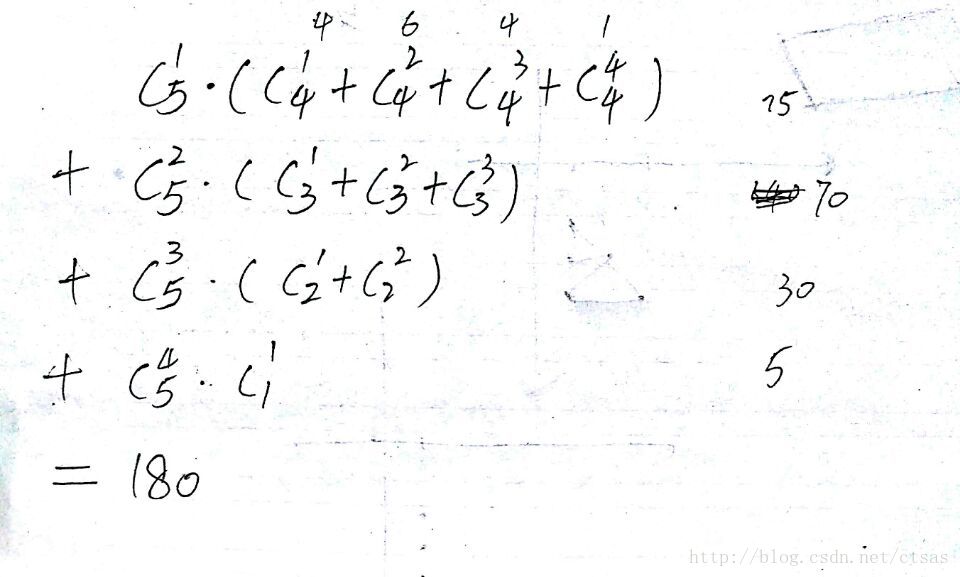 4 6 4 1
C₅¹·(C₄¹+C₄²+C₄³+C₄⁴) 75
+ C₅²·(C₃¹+C₃²+C₃³) 70
+ C₅³·(C₂¹+C₂²) 30
+ C₅⁴·C₁¹ 5
= 180
http://blog.csdn.net/ctsas